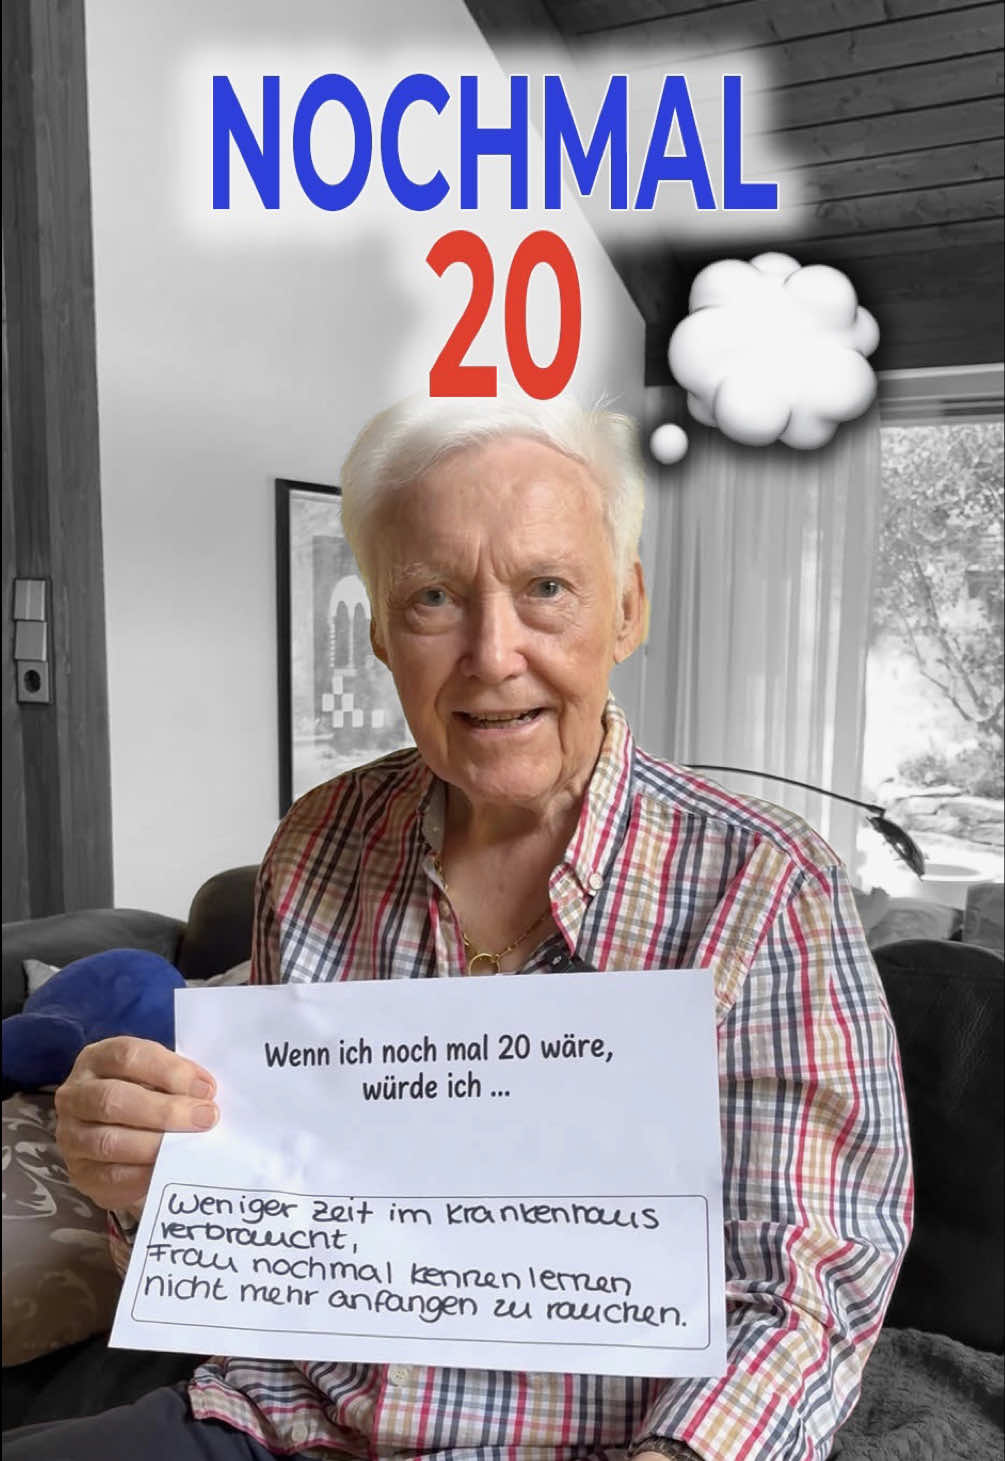 NOCHMAL
20
Wenn ich noch mal 20 wäre,
würde ich ...
Weniger Zeit im Krankenhaus
verbraucht,
Frau nochmal kennen lernen
nicht mehr anfangen zu rauchen.